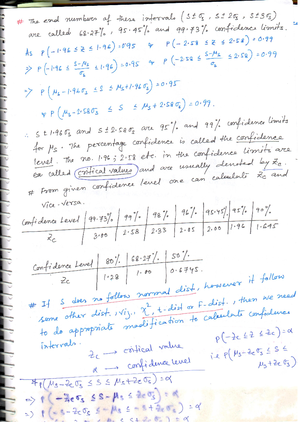 # The end numbers of these intervals (S±σs, S±2σs, S±3σs)
are called 68.27%, 95.45% and 99.73% confidence limits.
As P(-1.96 ≤ Z ≤ 1.96) = 0.95 & P(-2.58 ≤ Z ≤ 2.58) = 0.99
⇒ P(-1.96 ≤ S-μs/σs ≤ 1.96) = 0.95 & P(-2.58 ≤ S-μs/σs ≤ 2.58) = 0.99
⇒ P(μs-1.96σs ≤ S ≤ μs+1.96σs) = 0.95
& P(μs-2.58σs ≤ S ≤ μs+2.58σs) = 0.99.
∴ S±1.96σs and S±2.58σs are 95% and 99% confidence limits
for μs. The percentage confidence is called the confidence
level. The no. 1.96, 2.58 etc. in the confidence limits are
called critical values and are usually denoted by Zc.
# From given confidence level one can calculate Zc and
vice-versa.
Confidence Level 99.73% 99% 98% 96% 95.45% 95% 90%
Zc 3.00 2.58 2.33 2.05 2.00 1.96 1.645
Confidence Level 80% 68.27% 50%
Zc 1.28 1.00 0.6745
# If S does not follow normal dist., however it follow
some other dist., viz., χ², t-dist or F-dist., then we need
to do appropriate modification to calculate confidence
intervals.
Zc → critical value
α → confidence level
P(-Zc ≤ Z ≤ Zc) = α
i.e P(μs-Zcσs ≤ S ≤ μs+Zcσs)
# P(μs-Zcσs ≤ S ≤ μs+Zcσs) = α
⇔ P(-Zcσs ≤ S-μs ≤ Zcσs) = α
⇒ P(-S-Zcσs ≤ -μs ≤ -S+Zcσs) = α